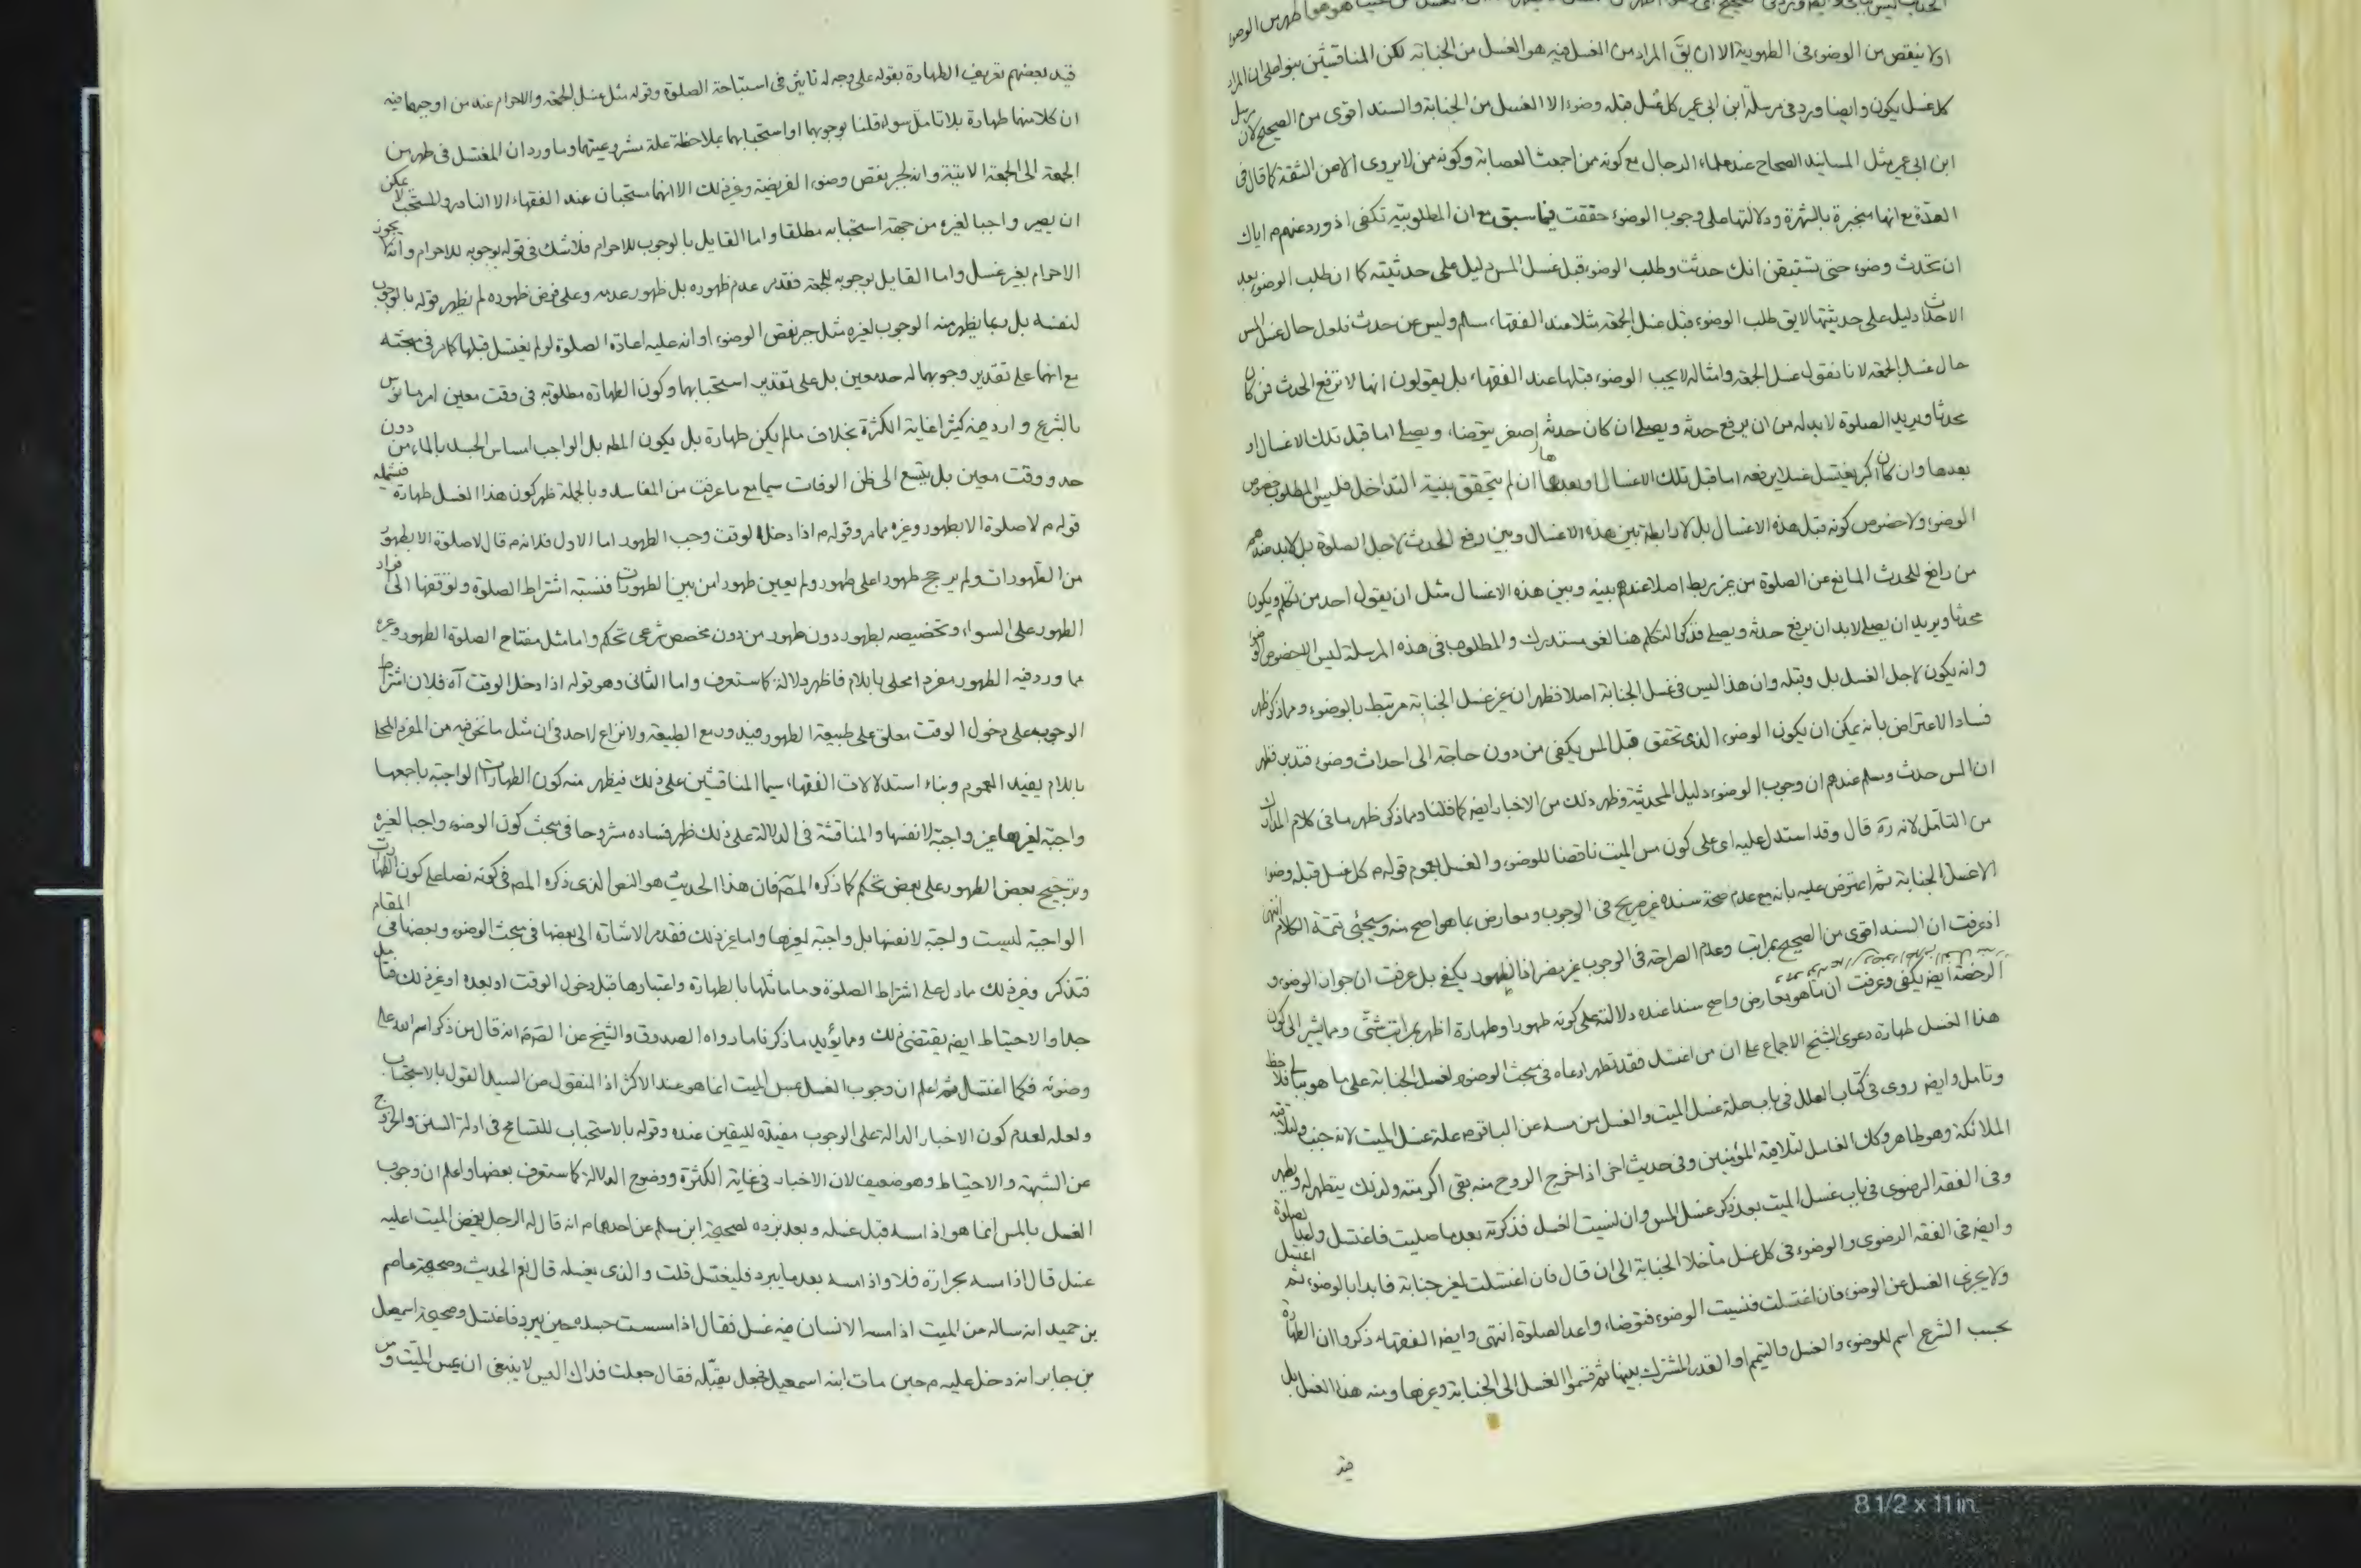 اولا ينقص من الوضوء في الطهورية الا ان يق المراد من الغسل فيه هو الغسل من الجنابة لكن المناقشين بنوا على ان المراد
كل غسل يكون وايضا ورد في مرسلة ابن ابي عمير كل غسل قبله وضوء الا الغسل من الجنابة والسند اقوى من الصحيح لان
ابن ابي عمير مثل المسانيد الصحاح عند علماء الرجال مع كونه ممن اجمعت العصابة وكونه ممن لا يروى الا من الثقة كما قال في
العدة مع انها منجبرة بالشهرة ودلالتها على وجوب الوضوء حققت فيما سبق مع ان المطلوبية تكفى اذ ورد عنهم م اياك
ان تحدث وضوء حتى تستيقن انك حدثت وطلب الوضوء قبل غسل المس دليل على حدثيته كما ان طلب الوضوء بعد
الاحداث دليل على حدثيتها لا يق طلب الوضوء قبل غسل الجمعة مثلا عند الفقهاء مسلم وليس عن حدث فلعل حال غسل المس
حال غسل الجمعة لانا نقول غسل الجمعة وامثاله لا يجب الوضوء قبلها عند الفقهاء بل يقولون انها لا ترفع الحدث فمن كان
محدثا ويريد الصلوة لا بد له من ان يرفع حدثه ويصلى ان كان حدثه اصغر يتوضا، ويصلى اما قبل تلك الاغسال او
بعدها وان كان اكبر يغتسل غسلا يرفعه اما قبل تلك الاغسال او بعدها ان لم يتحقق بنية التداخل فليس المطلوب خصوص
الوضوء ولا خصوص كونه قبل هذه الاغسال بل لا رابطة بين هذه الاغسال وبين رفع الحدث لاجل الصلوة بل لا بد عندهم
من رافع للحدث المانع عن الصلوة من غير ربط اصلا عندهم بينه وبين هذه الاغسال مثل ان يقول احد من تكلم ويكون
محدثا ويريد ان يصلى لا بد ان يرفع حدثه ويصلى فذكر التكلم هنا لغو مستدرك والمطلوب في هذه المرسلة ليس الا خصوص الوضوء
وانه يكون لاجل الغسل بل وقبله وان هذا ليس في غسل الجنابة اصلا فظهر ان غير غسل الجنابة مرتبط بالوضوء ومما ذكر ظهر
فساد الاعتراض بانه يمكن ان يكون الوضوء الذى تحقق قبل المس يكفى من دون حاجة الى احداث وضوء فتدبر فظهر
ان المس حدث ومسلم عندهم ان وجوب الوضوء دليل المحدثية وظهر ذلك من الاخبار ايض كما قلنا ومما ذكر ظهر ما في كلام المدارك
من التامل لانه ره قال وقد استدل عليه اى على كون مس الميت ناقضا للوضوء والغسل بعموم قوله م كل غسل قبله وضوء
الا غسل الجنابة ثم اعترض عليه بانه مع عدم صحة سنده غير صريح في الوجوب ومعارض بما هو اصح منه وسيجئى تتمة الكلام انتهى
اذ عرفت ان السند اقوى من الصحيح بمراتب وعدم الصراحة في الوجوب غير مضر اذ الظهور يكفى بل عرفت ان جواز الوضوء و
الرخصة ايض يكفى وعرفت ان ما هو معارض واصح سندا عنده دلالته على كونه طهورا وطهارة اظهر بمراتب شتى ومما يشير الى كون
هذا الغسل طهارة دعوى الشيخ الاجماع على ان من اغتسل فقد تطهر ادعاه في مبحث الوضوء لغسل الجنابة على ما هو ببالى فلاحظ
وتامل وايض روى في كتاب العلل في باب علة غسل الميت والغسل من مسه عن الباقر م علة غسل الميت لانه جنب ولتلاقيه
الملائكة وهو طاهر وكك الغاسل لتلاقيه المؤمنين وفي حديث اخر اذا خرج الروح منه بقى اكثر افته ولذلك يتطهر له ويطهر
وفي الفقه الرضوى في باب غسل الميت بعد ذكر غسل المس وان نسيت الغسل فذكرته بعد ما صليت فاغتسل واعد صلوتك
وايض في الفقه الرضوى والوضوء في كل غسل ما خلا الجنابة الى ان قال فان اغتسلت لغير جنابة فابدا بالوضوء ثم اغتسل
ولا يجزى الغسل عن الوضوء فان اغتسلت فنسيت الوضوء فتوضا، واعد الصلوة انتهى وايض الفقهاء ذكروا ان الطهارة
بحسب الشرع اسم للوضوء والغسل والتيمم او القدر المشترك بينها ثم قسموا الغسل الى الجنابة وغيرها ومنه هذا الغسل بل
قيد
قيد بعضهم تعريف الطهارة بقوله على وجه له تاثير في استباحة الصلوة وقوله مثل غسل الجمعة والاحرام عند من اوجبهما فيه
ان كلا منهما طهارة بلا تامل سواء قلنا بوجوبهما او استحبابهما بملاحظة علة مشروعيتهما وما ورد ان المغتسل في طهر من
الجمعة الى الجمعة الاتية وانه لجبر نقص وضوء الفريضة وغير ذلك الا انهما مستحبان عند الفقهاء الا النادر والمستحب لا يمكن
ان يصير واجبا لغيره من جهة استحبابه مطلقا واما القايل بالوجوب للاحرام فلا شك في قوله بوجوبه للاحرام وانه لا يجوز
الاحرام بغير غسل واما القايل بوجوبه للجمعة فقدمر عدم ظهوره بل ظهور عدمه وعلى فرض ظهوره لم يظهر قوله بالوجوب
لنفسه بل ربما يظهر منه الوجوب لغيره مثل جبر نقص الوضوء او انه عليه اعادة الصلوة لو لم يغتسل قبلها كما مر في مبحثه
مع انهما على تقدير وجوبهما له حد معين بل على تقدير استحبابهما وكون الطهارة مطلوبة في وقت معين امر مانوس
بالشرع وارد منه كثيرا غاية الكثرة بخلاف ما لم يكن طهارة بل يكون المط بل الواجب امساس الجسد بالماء من دون
حد ووقت معين بل يتسع الى ظن الوفات سيما مع ما عرفت من المفاسد وبالجملة ظهر كون هذا الغسل طهارة فيشمله
قوله م لا صلوة الا بطهور وغيره مما مر وقوله م اذا دخل الوقت وجب الطهور اما الاول فلانه م قال لا صلوة الا بطهور
من الطهورات ولم يرجح طهورا على طهور ولم يعين طهورا من بين الطهورات فنسبة اشتراط الصلوة وتوقفها الى افراد
الطهور على السواء وتخصيصه بطهور دون طهور من دون مخصص شرعى تحكم واما مثل مفتاح الصلوة الطهور وغيره
مما ورد فيه الطهور مفردا محلى باللام فاظهر دلالة كما ستعرف واما الثانى وهو قوله اذا دخل الوقت اه فلان اشتراط
الوجوب على دخول الوقت معلق على طبيعة الطهور فيدور مع الطبيعة ولا نزاع لاحد في ان مثل ما نحن فيه من المفرد المحلى
باللام يفيد العموم وبناء استدلالات الفقهاء سيما المناقشين على ذلك فيظهر منه كون الطهارات الواجبة باجمعها
واجبة لغيرها غير واجبة لانفسها والمناقشة في الدلالة على ذلك ظهر فساده مشروحا في مبحث كون الوضوء واجبا لغيره
وترجيح بعض الطهور على بعض تحكم كما ذكره المص فان هذا الحديث هو النص الذى ذكره المص في كونه نصا على كون الطهارات
الواجبة ليست واجبة لانفسها بل واجبة لغيرها واما غير ذلك فقدمر الاشارة الى بعضها في مبحث الوضوء وبعضها في المقام
فتذكر وغير ذلك مما دل على اشتراط الصلوة وما ماثلها بالطهارة واعتبارها قبل دخول الوقت او بعده او غير ذلك فتامل
جدا والاحتياط ايض يقتضى ذلك ومما يؤيد ما ذكرنا ما رواه الصدوق والشيخ عن الص م انه قال من ذكر اسم الله على
وضوئه فكانما اغتسل ثم اعلم ان وجوب الغسل بمس الميت انما هو عند الاكثر اذ المنقول من السيد القول بالاستحباب
ولعله لعدم كون الاخبار الدالة على الوجوب مفيدة لليقين عنده وقوله بالاستحباب للتسامح في ادلة السنن والخروج
عن الشبهة والاحتياط وهو ضعيف لان الاخبار في غاية الكثرة ووضوح الدلالة كما ستعرف بعضها واعلم ان وجوب
الغسل بالمس انما هو اذا مسه قبل غسله وبعد برده لصحيحة ابن مسلم عن احدهما م انه قال له الرجل يغمض الميت اعليه
غسل قال اذا مسه بحرارة فلا واذا مسه بعد ما يبرد فليغتسل قلت والذى يغسله قال نعم الحديث وصحيحة عاصم
بن حميد انه ساله من الميت اذا مسه الانسان فيه غسل فقال اذا مسست جسده حين يبرد فاغتسل وصحيحة اسمعيل
بن جابر انه دخل عليه م حين مات ابنه اسمعيل فجعل يقبله فقال جعلت فداك اليس لا ينبغى ان يمس الميت ومن
8 1/2 x 11 in.